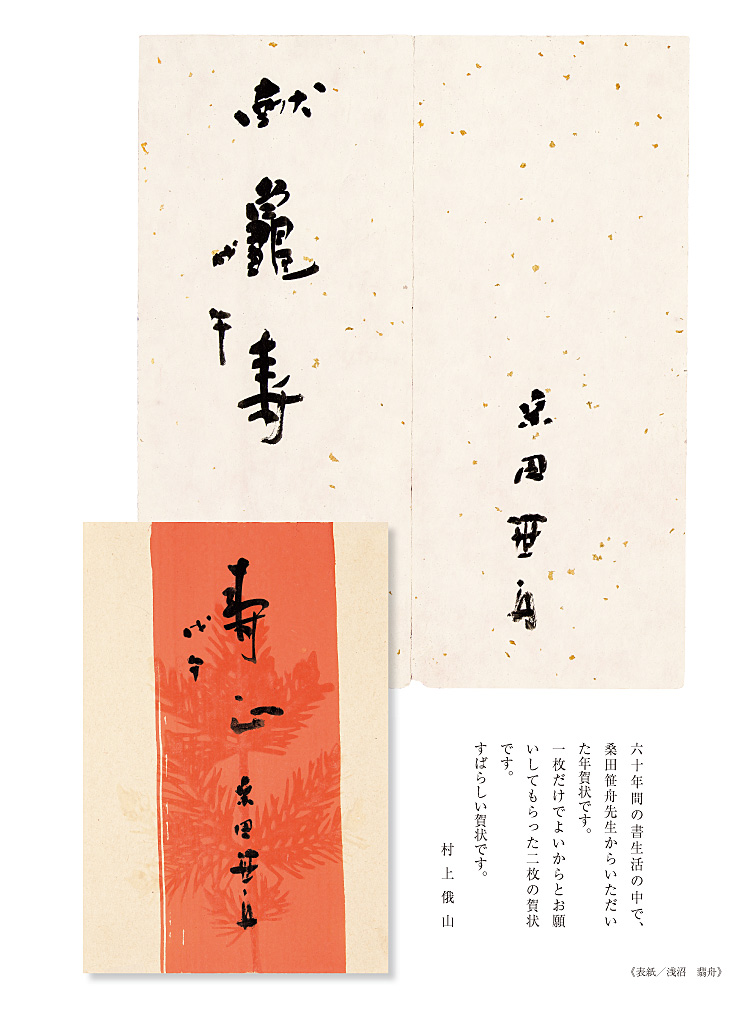 献龜寿
戊午
桑田笹舟
寿
戊午
桑田笹舟
六十年間の書生活の中で、
桑田笹舟先生からいただい
た年賀状です。
一枚だけでよいからとお願
いしてもらった二枚の賀状
です。
すばらしい賀状です。
村上俄山
《表紙／浅沼　翡舟》